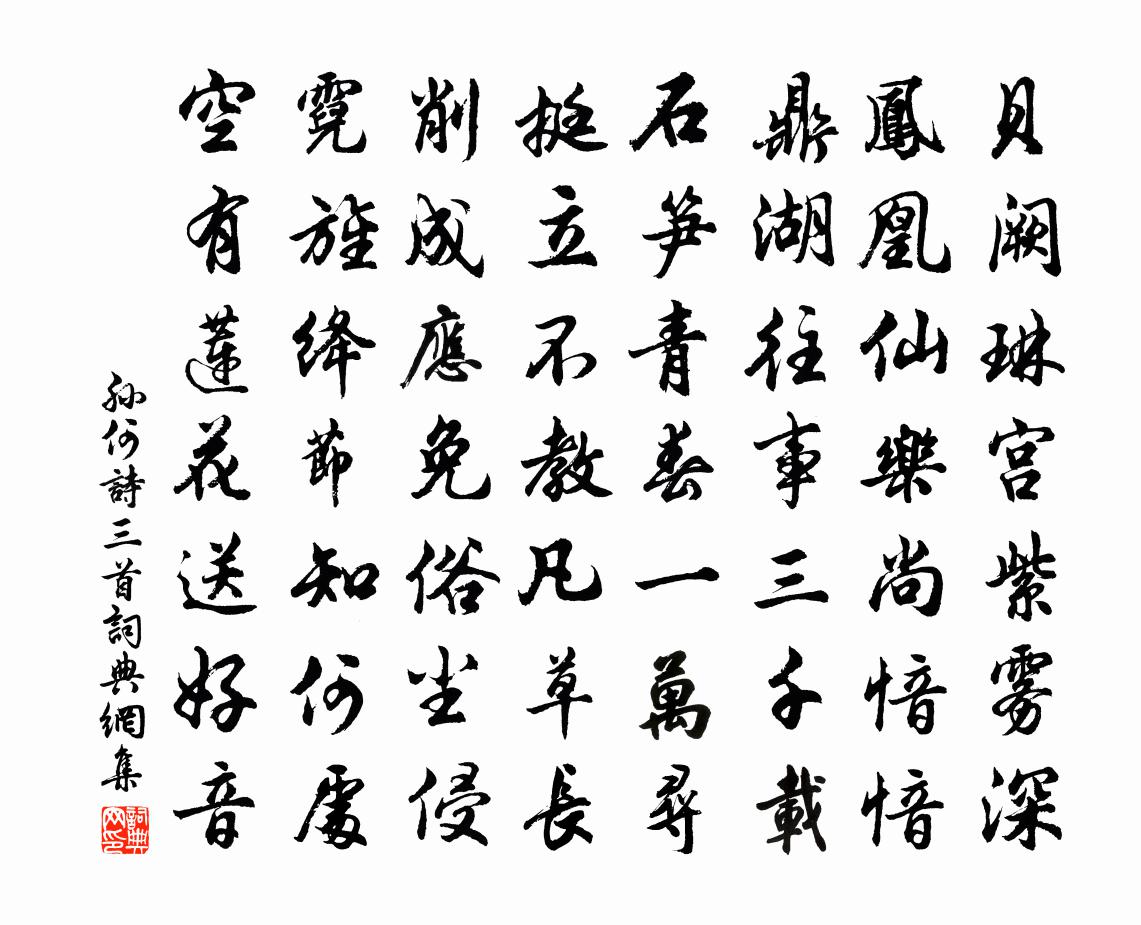 貝闕琳宫紫雾深
鳳凰仙樂尚愔愔
鼎湖往事三千載
石笋青春一萬尋
挺立不教凡草長
削成應免俗尘侵
霓旌绛節知何處
空有蓮花送好音
孙何詩三首詞典網集
詞典网印